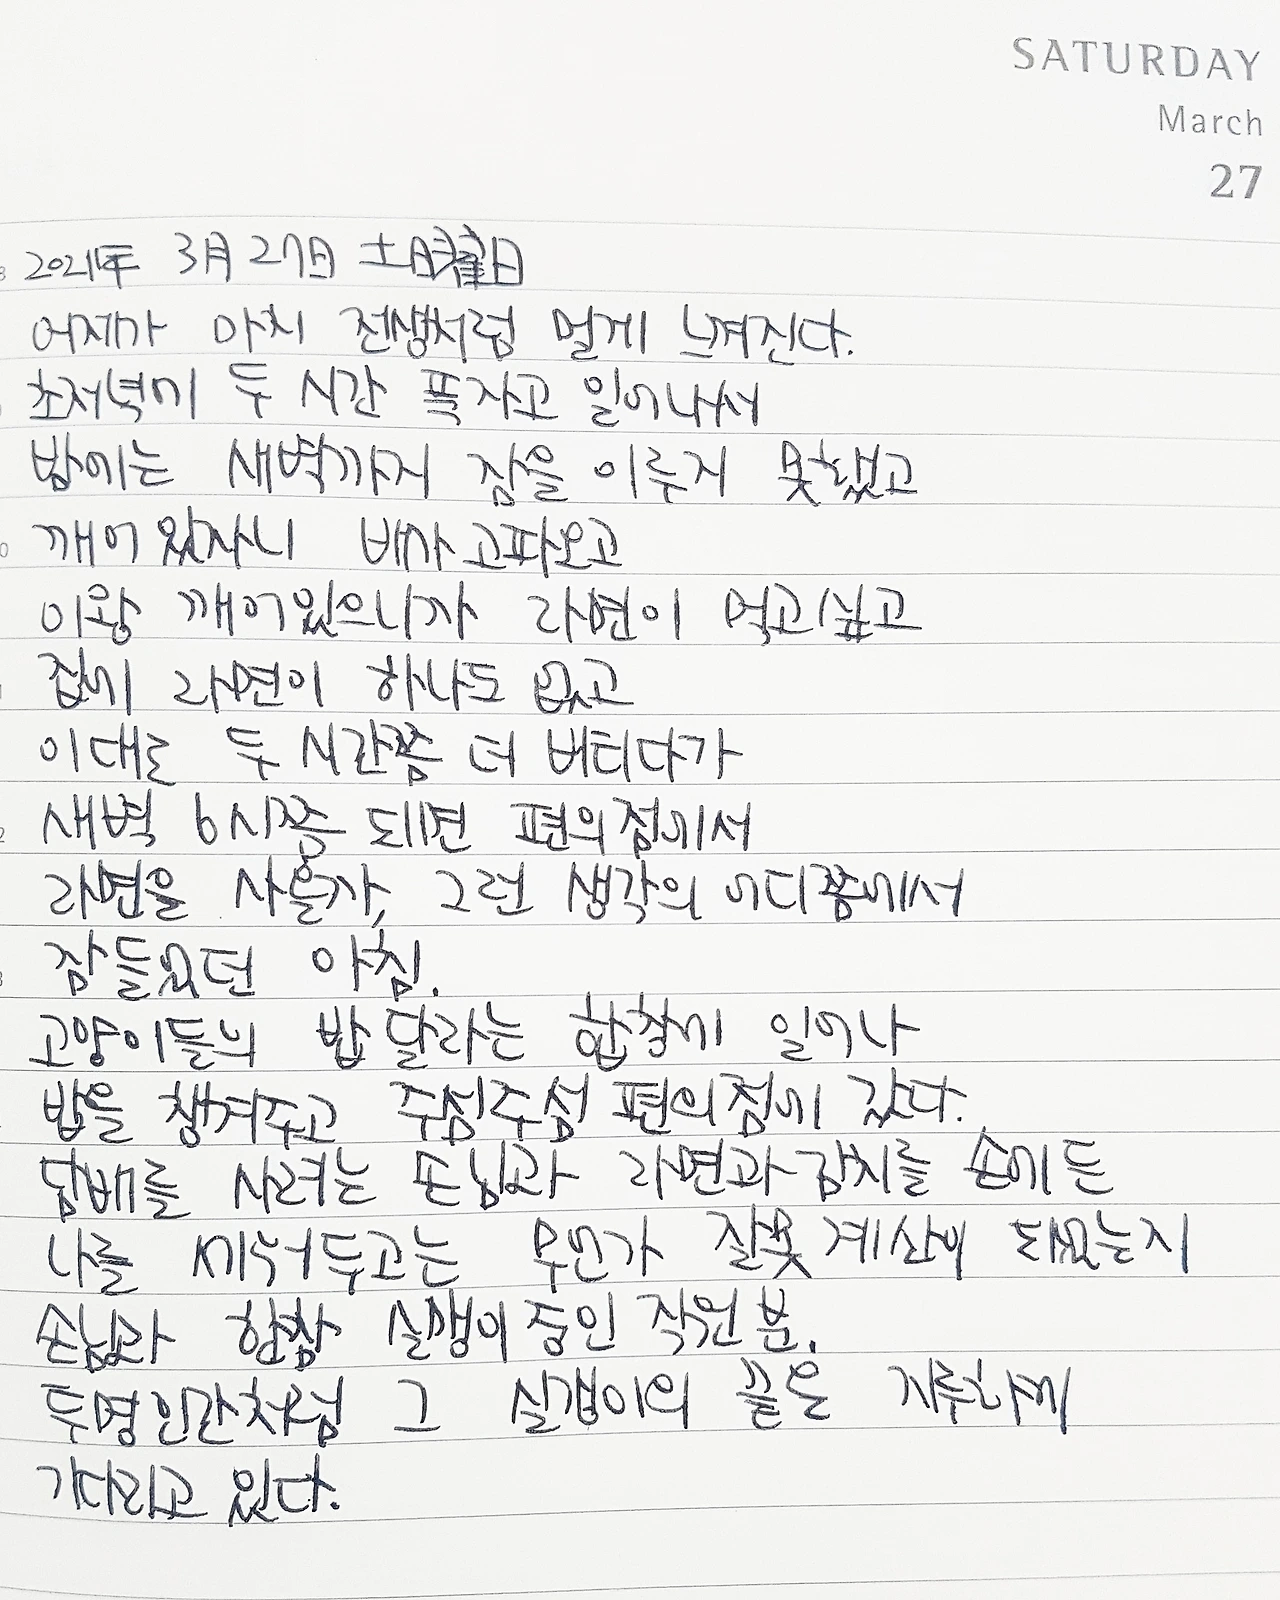 SATURDAY
March
27
2021年 3月 27日 土曜日
어제가 마치 전생처럼 멀게 느껴진다.
초저녁에 두 시간 푹자고 일어나서
밤에는 새벽까지 잠을 이루지 못했고
깨어 있자니 배가 고파오고
이왕 깨어있으니까 라면이 먹고싶고
집에 라면이 하나도 없고
이대로 두 시간쯤 더 버티다가
새벽 6시쯤 되면 편의점에서
라면을 사올까, 그런 생각의 어디쯤에서
잠들었던 아침.
고양이들의 밥 달라는 합창에 일어나
밥을 챙겨주고 주섬주섬 편의점에 갔다.
담배를 사려는 손님과 라면과 김치를 손에 든
나를 세워두고는 무언가 잘못 계산이 되었는지
손님과 한참 실갱이 중인 직원분.
투명인간처럼 그 실갱이의 끝을 지루하게
기다리고 있다.